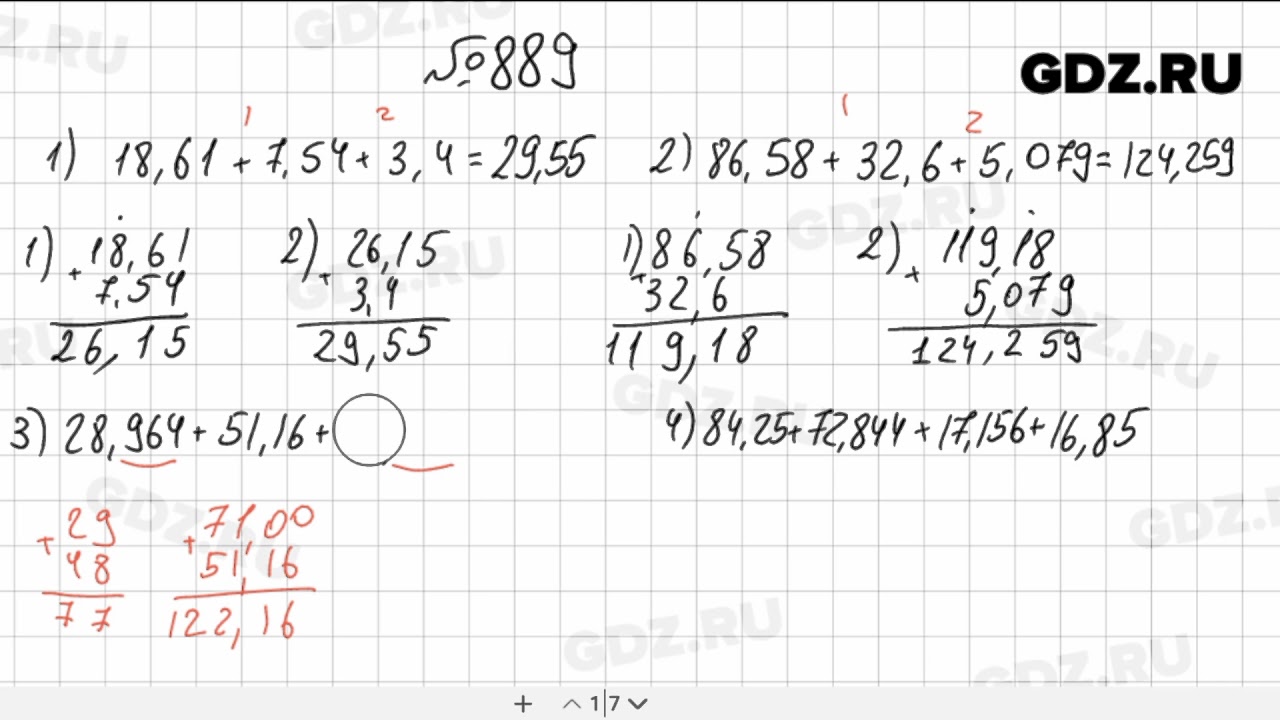 №889
GDZ.RU
1 2
1) 18,61 + 7,54 + 3,4 = 29,55
1 2
2) 86,58 + 32,6 + 5,079 = 124,259
1) 18,61
+ 7,54
26,15
2) 26,15
+ 3,4
29,55
1) 86,58
+ 32,6
119,18
2) 119,18
+ 5,079
124,259
3) 28,964 + 51,16 +
4) 84,25 + 72,844 + 17,156 + 16,85
29
+ 48
77
71,00
+ 51,16
122,16
+ 1|7